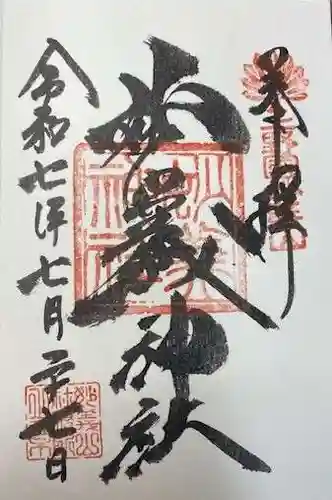 奉拝
妙義神社
令和七年七月二十七日